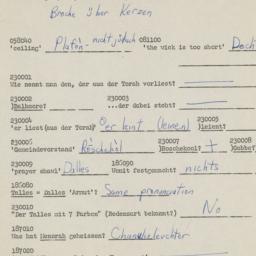 Broche über Kerzen
058040 081100
'ceiling' Plafōn - nicht jüdisch 'the wick is too short' Doch
230001
Wie nennt man den, der aus der Torah vorliest?
230002 230003
Balhoore? ...der dabei steht?
230004 230005
'er liest(aus der Torah)' er leint (leinen) leient?
230006 230007 230008
'Gemeindevorstand' Rōschekōl Boschekool? + Gabbe?
230009 185090
'prayer shawl' Dalles Womit festgemacht? nichts
185080
Talles = Dalles 'Armut'? Same pronunciation
230010
"Der Talles mit 7 Farben" (Redensart bekannt?) No
187010
Was hat Menorah geheissen? Chanukeleuchter
187020